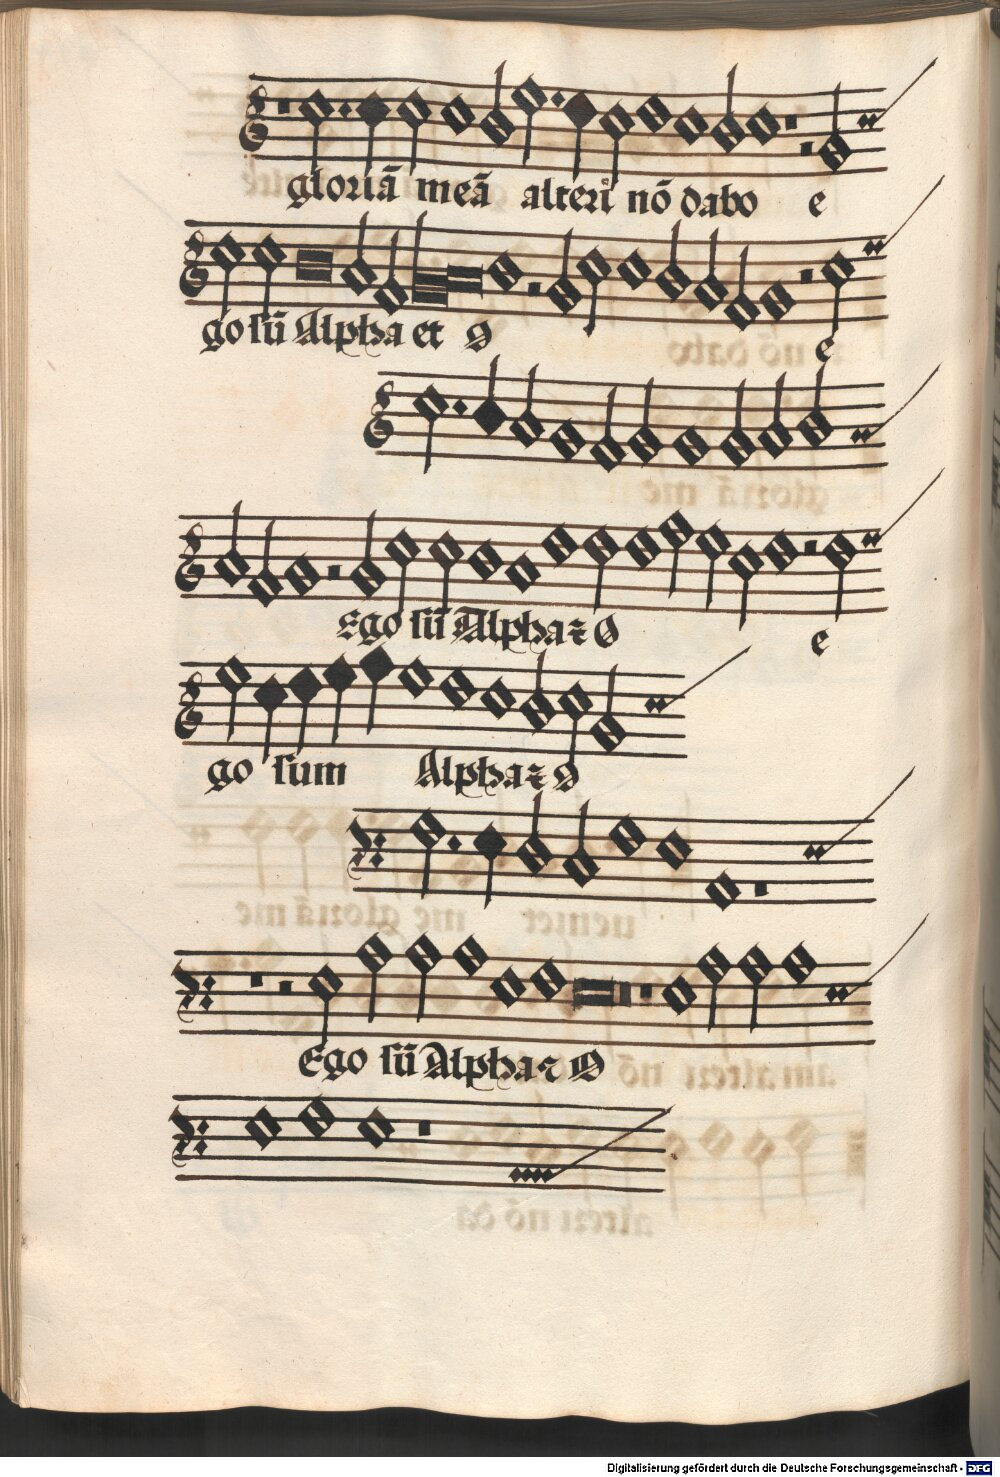 gloriā meā alteri nō dabo e
go sū Alpha et O e
Ego sū Alpha ⁊ O e
go sum Alpha ⁊ O
Ego sū Alpha ⁊ O
Digitalisierung gefördert durch die Deutsche Forschungsgemeinschaft - DFG